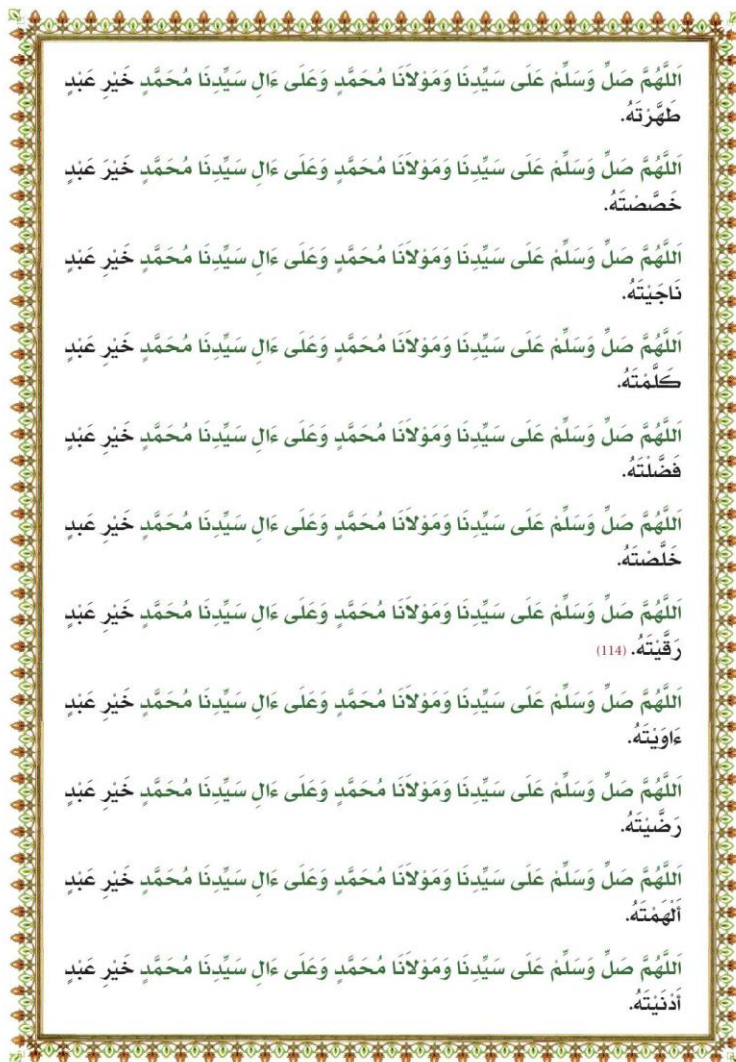 اَللَّهُمَّ صَلِّ وَسَلِّمْ عَلَى سَيِّدِنَا وَمَوْلَانَا مُحَمَّدٍ وَعَلَى ءَالِ سَيِّدِنَا مُحَمَّدٍ خَيْرِ عَبْدٍ
طَهَّرْتَهُ.
اَللَّهُمَّ صَلِّ وَسَلِّمْ عَلَى سَيِّدِنَا وَمَوْلَانَا مُحَمَّدٍ وَعَلَى ءَالِ سَيِّدِنَا مُحَمَّدٍ خَيْرَ عَبْدٍ
خَصَّصْتَهُ.
اَللَّهُمَّ صَلِّ وَسَلِّمْ عَلَى سَيِّدِنَا وَمَوْلَانَا مُحَمَّدٍ وَعَلَى ءَالِ سَيِّدِنَا مُحَمَّدٍ خَيْرِ عَبْدٍ
نَاجَيْتَهُ.
اَللَّهُمَّ صَلِّ وَسَلِّمْ عَلَى سَيِّدِنَا وَمَوْلَانَا مُحَمَّدٍ وَعَلَى ءَالِ سَيِّدِنَا مُحَمَّدٍ خَيْرِ عَبْدٍ
كَلَّمْتَهُ.
اَللَّهُمَّ صَلِّ وَسَلِّمْ عَلَى سَيِّدِنَا وَمَوْلَانَا مُحَمَّدٍ وَعَلَى ءَالِ سَيِّدِنَا مُحَمَّدٍ خَيْرِ عَبْدٍ
فَضَّلْتَهُ.
اَللَّهُمَّ صَلِّ وَسَلِّمْ عَلَى سَيِّدِنَا وَمَوْلَانَا مُحَمَّدٍ وَعَلَى ءَالِ سَيِّدِنَا مُحَمَّدٍ خَيْرِ عَبدٍ
خَلَّصْتَهُ.
اَللَّهُمَّ صَلِّ وَسَلِّمْ عَلَى سَيِّدِنَا وَمَوْلَانَا مُحَمَّدٍ وَعَلَى ءَالِ سَيِّدِنَا مُحَمَّدٍ خَيْرِ عَبْدٍ
رَقَّيْتَهُ. (114)
اَللَّهُمَّ صَلِّ وَسَلِّمْ عَلَى سَيِّدِنَا وَمَوْلَانَا مُحَمَّدٍ وَعَلَى ءَالِ سَيِّدِنَا مُحَمَّدٍ خَيْرِ عَبْدٍ
ءَاوَيْتَهُ.
اَللَّهُمَّ صَلِّ وَسَلِّمْ عَلَى سَيِّدِنَا وَمَوْلَانَا مُحَمَّدٍ وَعَلَى ءَالِ سَيِّدِنَا مُحَمَّدٍ خَيْرِ عَبْدٍ
رَضَّيْتَهُ.
اَللَّهُمَّ صَلِّ وَسَلِّمْ عَلَى سَيِّدِنَا وَمَوْلَانَا مُحَمَّدٍ وَعَلَى ءَالِ سَيِّدِنَا مُحَمَّدٍ خَيْرِ عَبْدٍ
أَلْهَمْتَهُ.
اَللَّهُمَّ صَلِّ وَسَلِّمْ عَلَى سَيِّدِنَا وَمَوْلَانَا مُحَمَّدٍ وَعَلَى ءَالِ سَيِّدِنَا مُحَمَّدٍ خَيْرِ عَبْدٍ
أَدْنَيْتَهُ.